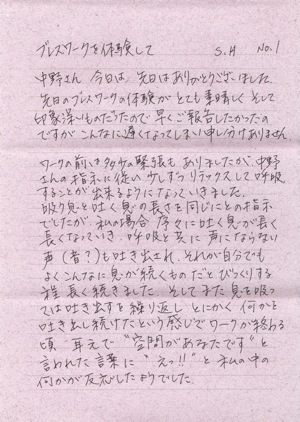 ブレスワークを体験して S.H No.1
中野さん 今日は、先日はありがとうございました。
先日のブレスワークの体験が とても素晴しく そして
印象深いものだったので 早くご報告したかったの
ですが こんなに遅くなってしまい申し分けありません
ワークの前は多少の緊張も ありましたが、中野
さんの指示に従い 少しずつ リラックスして呼吸
することが 出来るようになっていきました。
吸う息と吐く息の長さを同じにとの指示
でしたが、私の場合 序々に吐く息が長く
長くなっていき、呼吸と共に 声にならない
声（音？）も吐き出され、それが自分でも
よくこんなに息が続くものだとびっくりする
程 長く続きました そして また 息を吸っ
ては吐き出すを繰り返し とにかく 何かを
吐き出し続けたという感じで ワークが終わる
頃 耳元で “空間があなたです” と
言われた言葉に “えっ!!” と 私の中の
何かが反応したようでした。